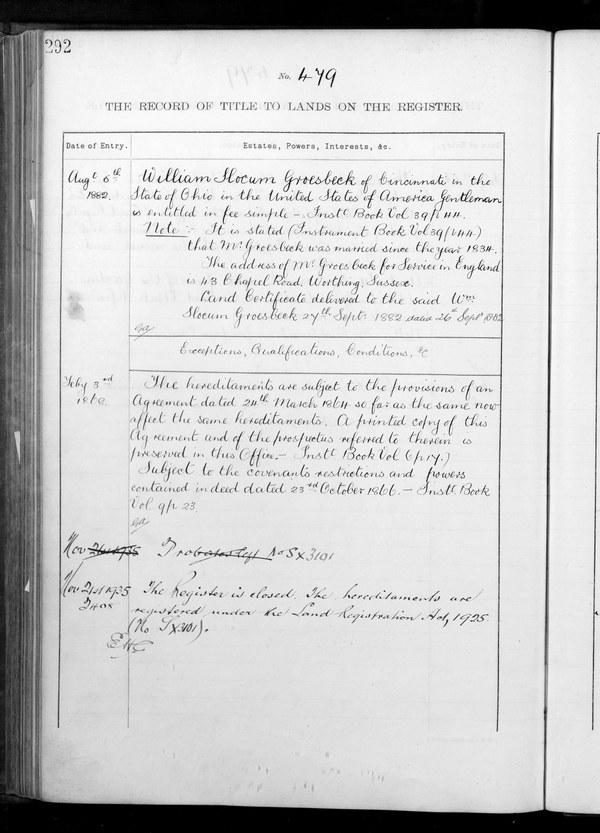 292
No. 479
THE RECORD OF TITLE TO LANDS ON THE REGISTER.
Date of Entry.
Estates, Powers, Interests, &c.
Augt 5th
1882.
William Slocum Groesbeck of Cincinnati in the
State of Ohio in the United States of America Gentleman
is entitled in fee simple – Instt Book Vol 39 p 144.
Note :- It is stated (Instrument Book Vol 39 p 144)
that Mr Groesbeck was married since the year 1834.
The address of Mr Groesbeck for Service in England
is 43 Chapel Road. Worthing, Sussex.
Land Certificate delivered to the said Wm
Slocum Groesbeck 27th Septr 1882 dated 26th Septr 1882
Exceptions, Qualifications, Conditions, &c
Feby 3rd
1868.
The hereditaments are subject to the provisions of an
Agreement dated 24th March 1864 so far as the same now
affect the same hereditaments. A printed copy of this
Agreement and of the prospectus referred to therein is
preserved in this Office. – Instt Book Vol 6 p 17.)
Subject to the covenants restrictions and powers
contained in deed dated 23rd October 1866. – Instt Book
Vol 9 p 23.
Nov 21st 1935
No Sx3101
Nov 21st 1935
The Register is closed. The hereditaments are
registered under the Land Registration Act, 1925.
(No Sx3101).